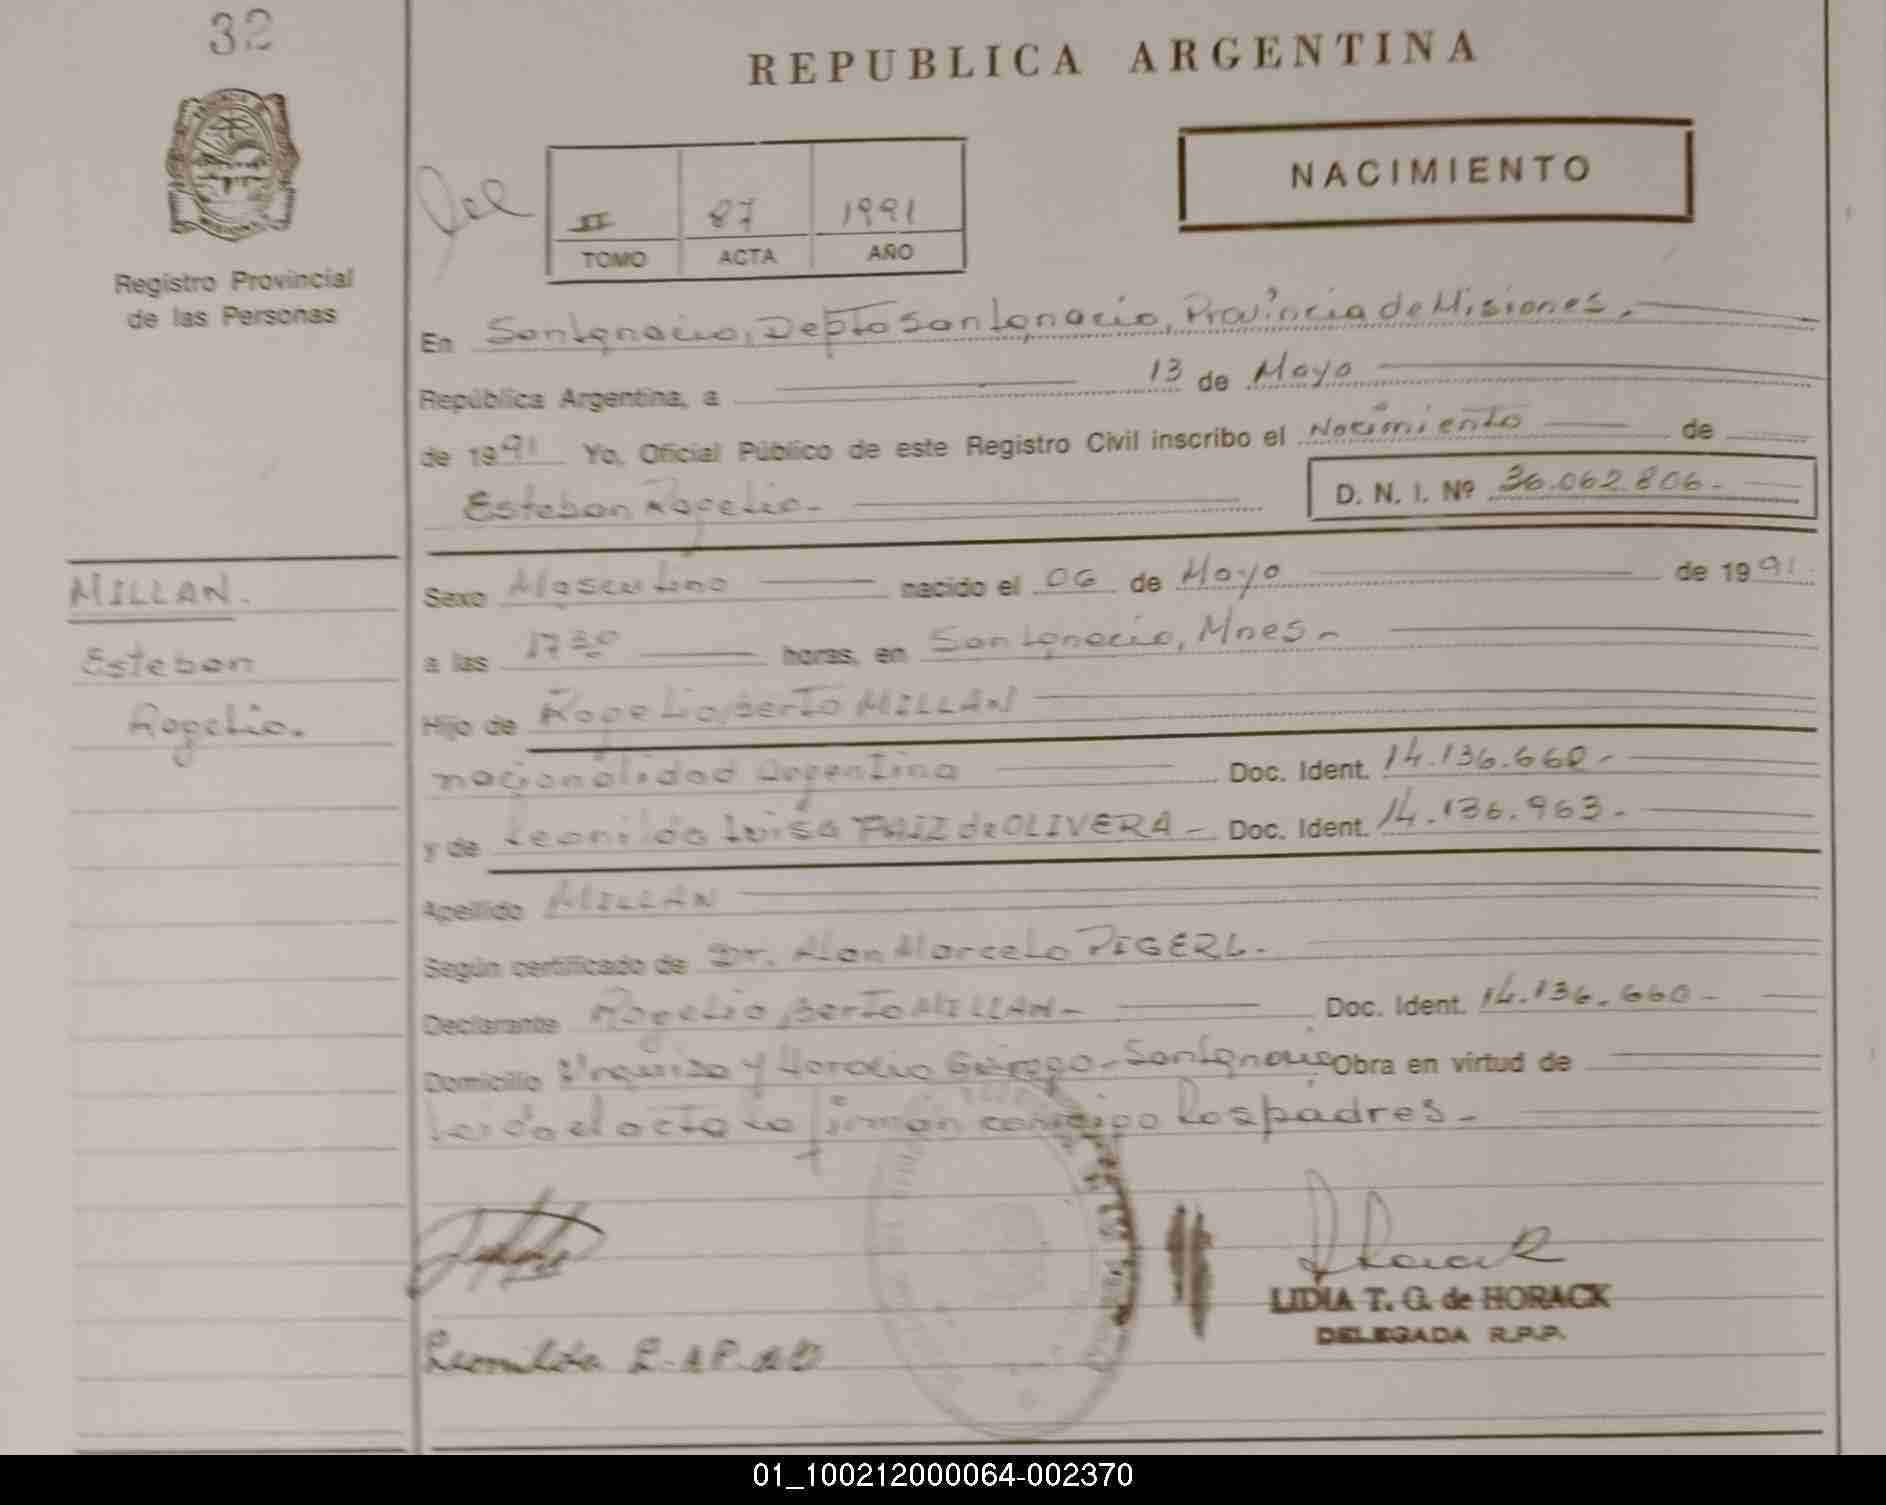 32
REPUBLICA ARGENTINA
NACIMIENTO
II 87 1991
TOMO ACTA AÑO
Registro Provincial
de las Personas
En San Ignacio, Depto San Ignacio, Provincia de Misiones.
República Argentina, a 13 de Mayo
de 1991 Yo, Oficial Público de este Registro Civil inscribo el Nacimiento de
Esteban Rogelio.- D. N. I. Nº 36.062.806.-
MILLAN.
Esteban
Rogelio.
Sexo Masculino nacido el 06 de Mayo de 1991
a las 17 30 horas, en San Ignacio, Mnes.-
Hijo de Rogelio Berto MILLAN
nacionalidad Argentina Doc. Ident. 14.136.660.-
y de Leonilda Luisa PAIZ de OLIVERA - Doc. Ident. 14.136.963.-
Apellido MILLAN
Según certificado de Dr. Alan Marcelo PIGERL.-
Declarante Rogelio Berto MILLAN.- Doc. Ident. 14.136.660-
Domicilio Urquiza y Horacio Quiroga - San Ignacio Obra en virtud de
Leida el acta la firman conmigo los padres.-
LIDIA T. G. de HORACK
DELEGADA R.P.P.
Leonilda
01_100212000064-002370